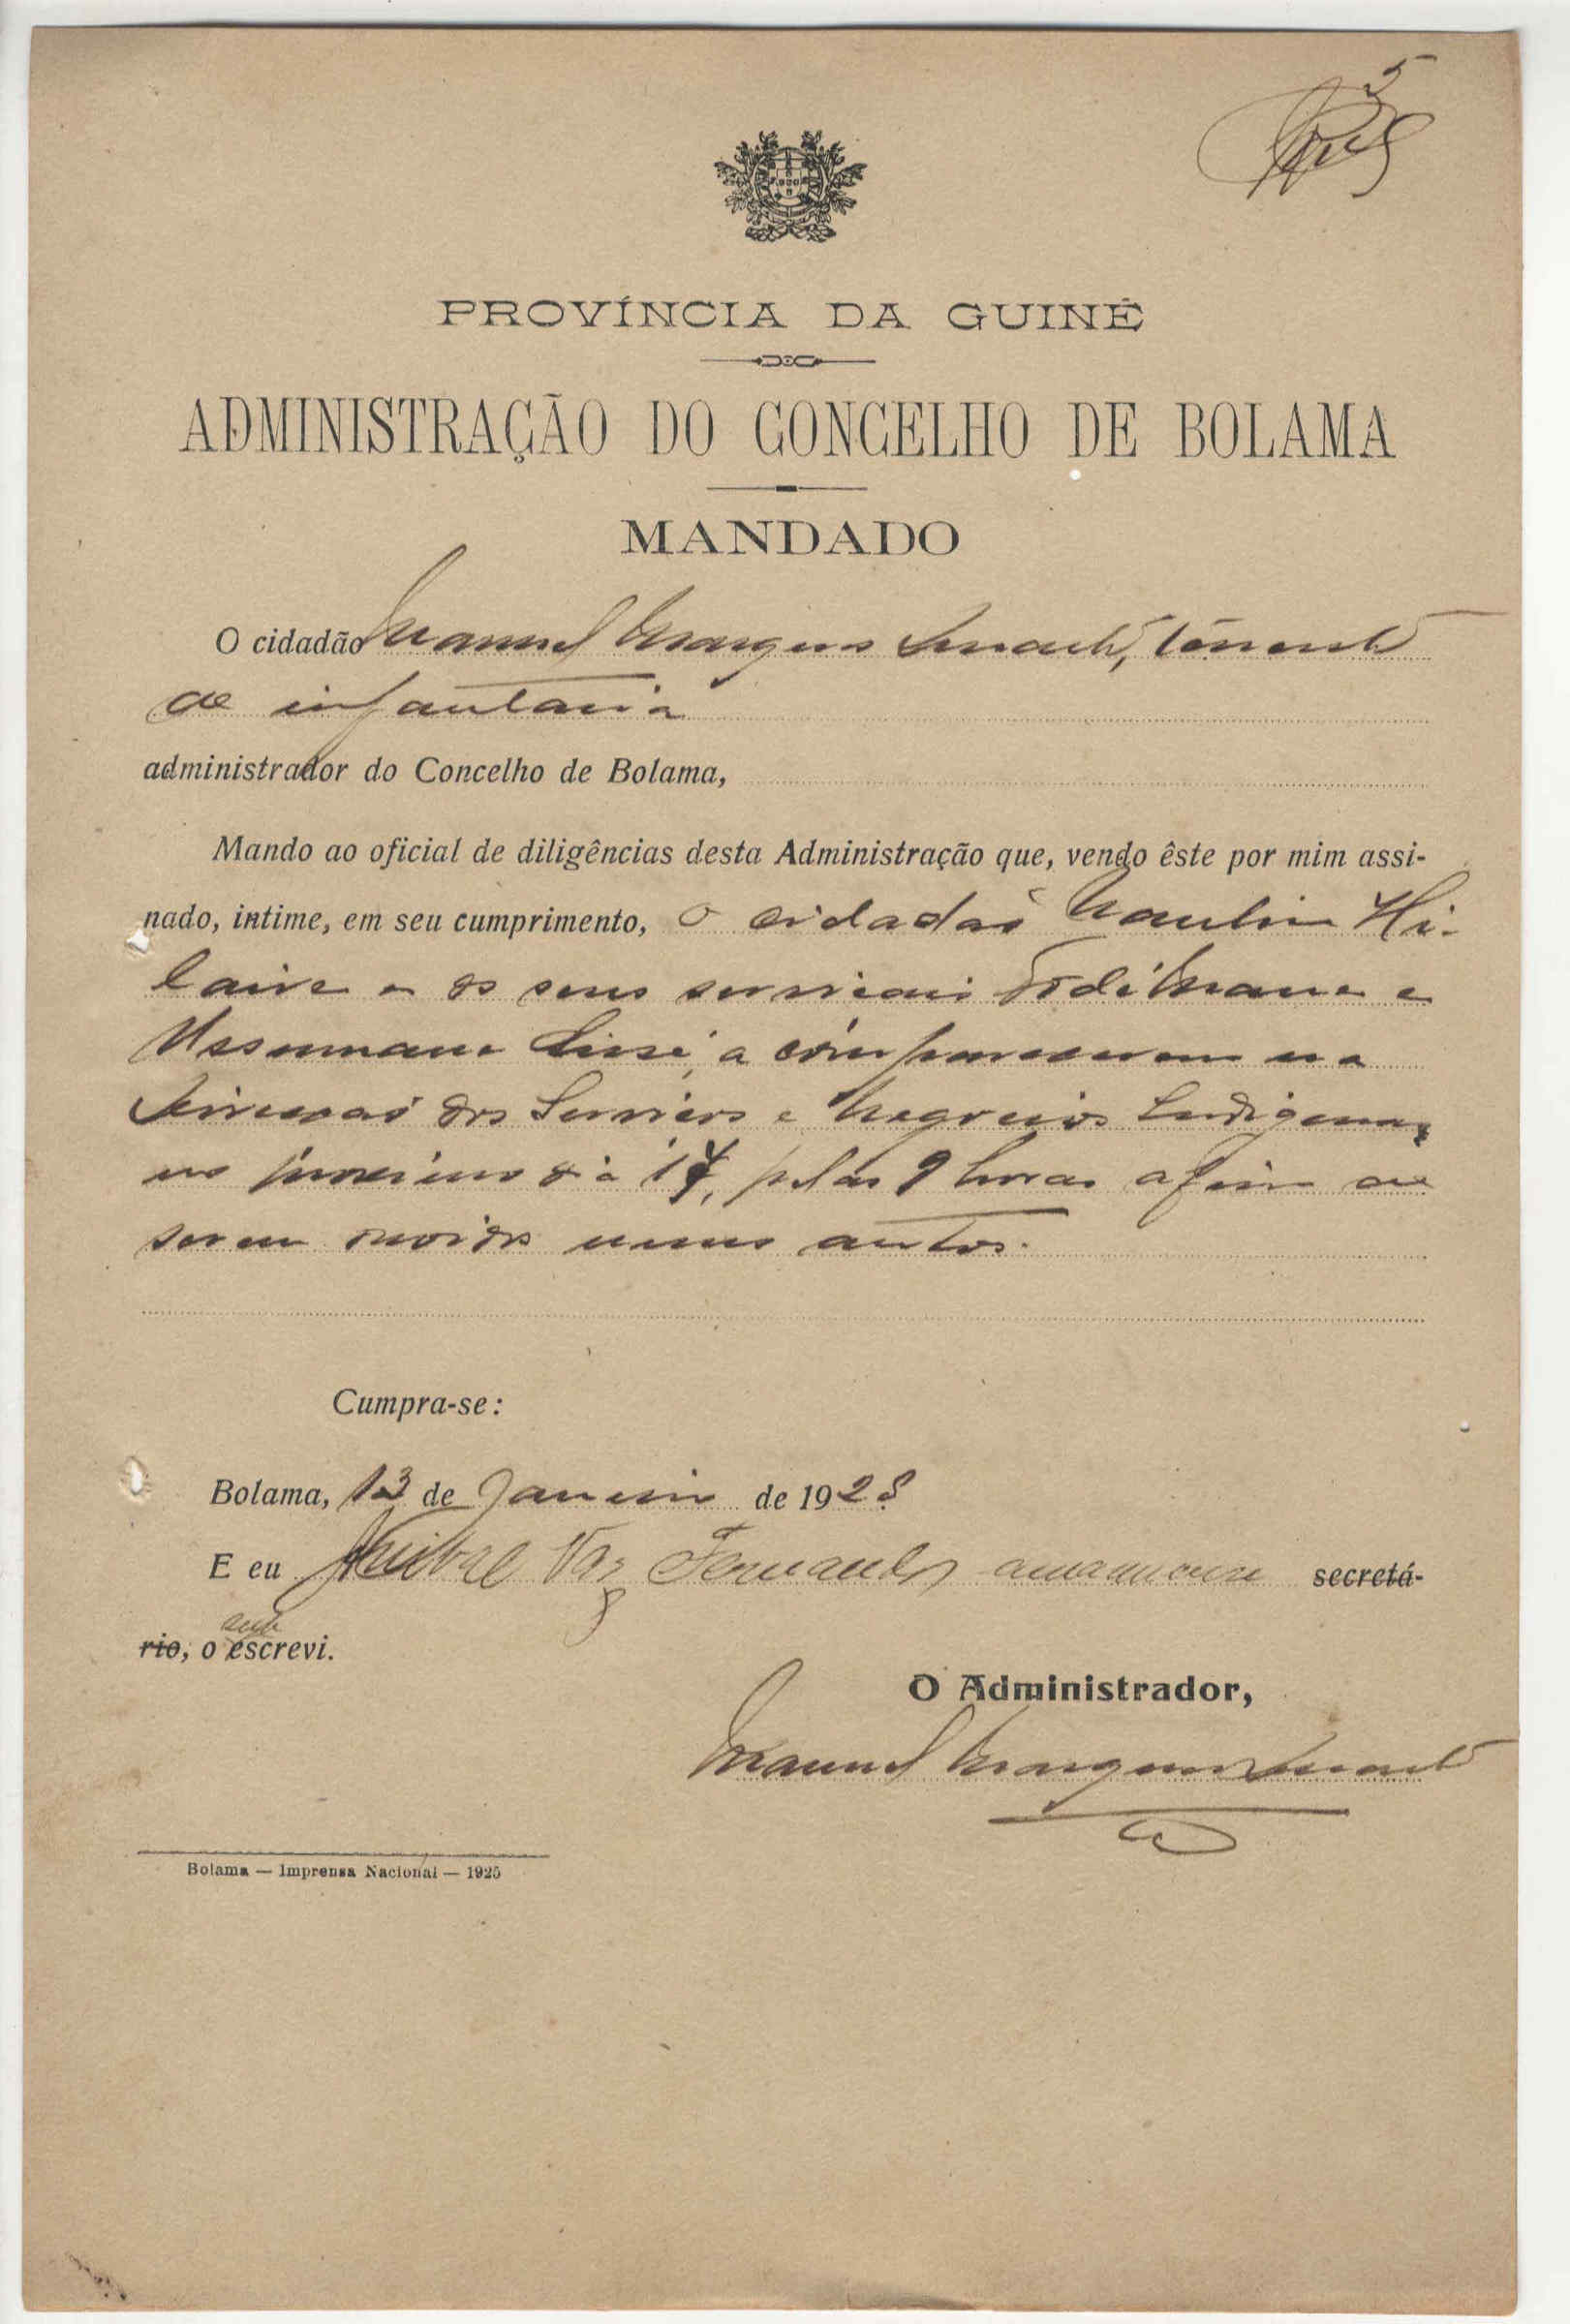 5
PROVÍNCIA DA GUINÉ
ADMINISTRAÇÃO DO CONCELHO DE BOLAMA
MANDADO
O cidadão Manuel Marques Duarte, tenente
de infantaria
administrador do Concelho de Bolama,
Mando ao oficial de diligências desta Administração que, vendo êste por mim assi-
nado, intime, em seu cumprimento, o cidadão Hi-
laire e os seus serviçais Mané e
a comparecerem na
Direcção dos Serviços e Negocios Indigenas,
no proximo dia 17, pelas 9 horas afim de
serem ouvidos nuns autos.
Cumpra-se:
Bolama, 13 de Janeiro de 1928
E eu Anibal Vaz Fernandes amanuense secretá-
rio, o sub escrevi.
O Administrador,
Manuel Marques Duarte
Bolama — Imprensa Nacional — 1925